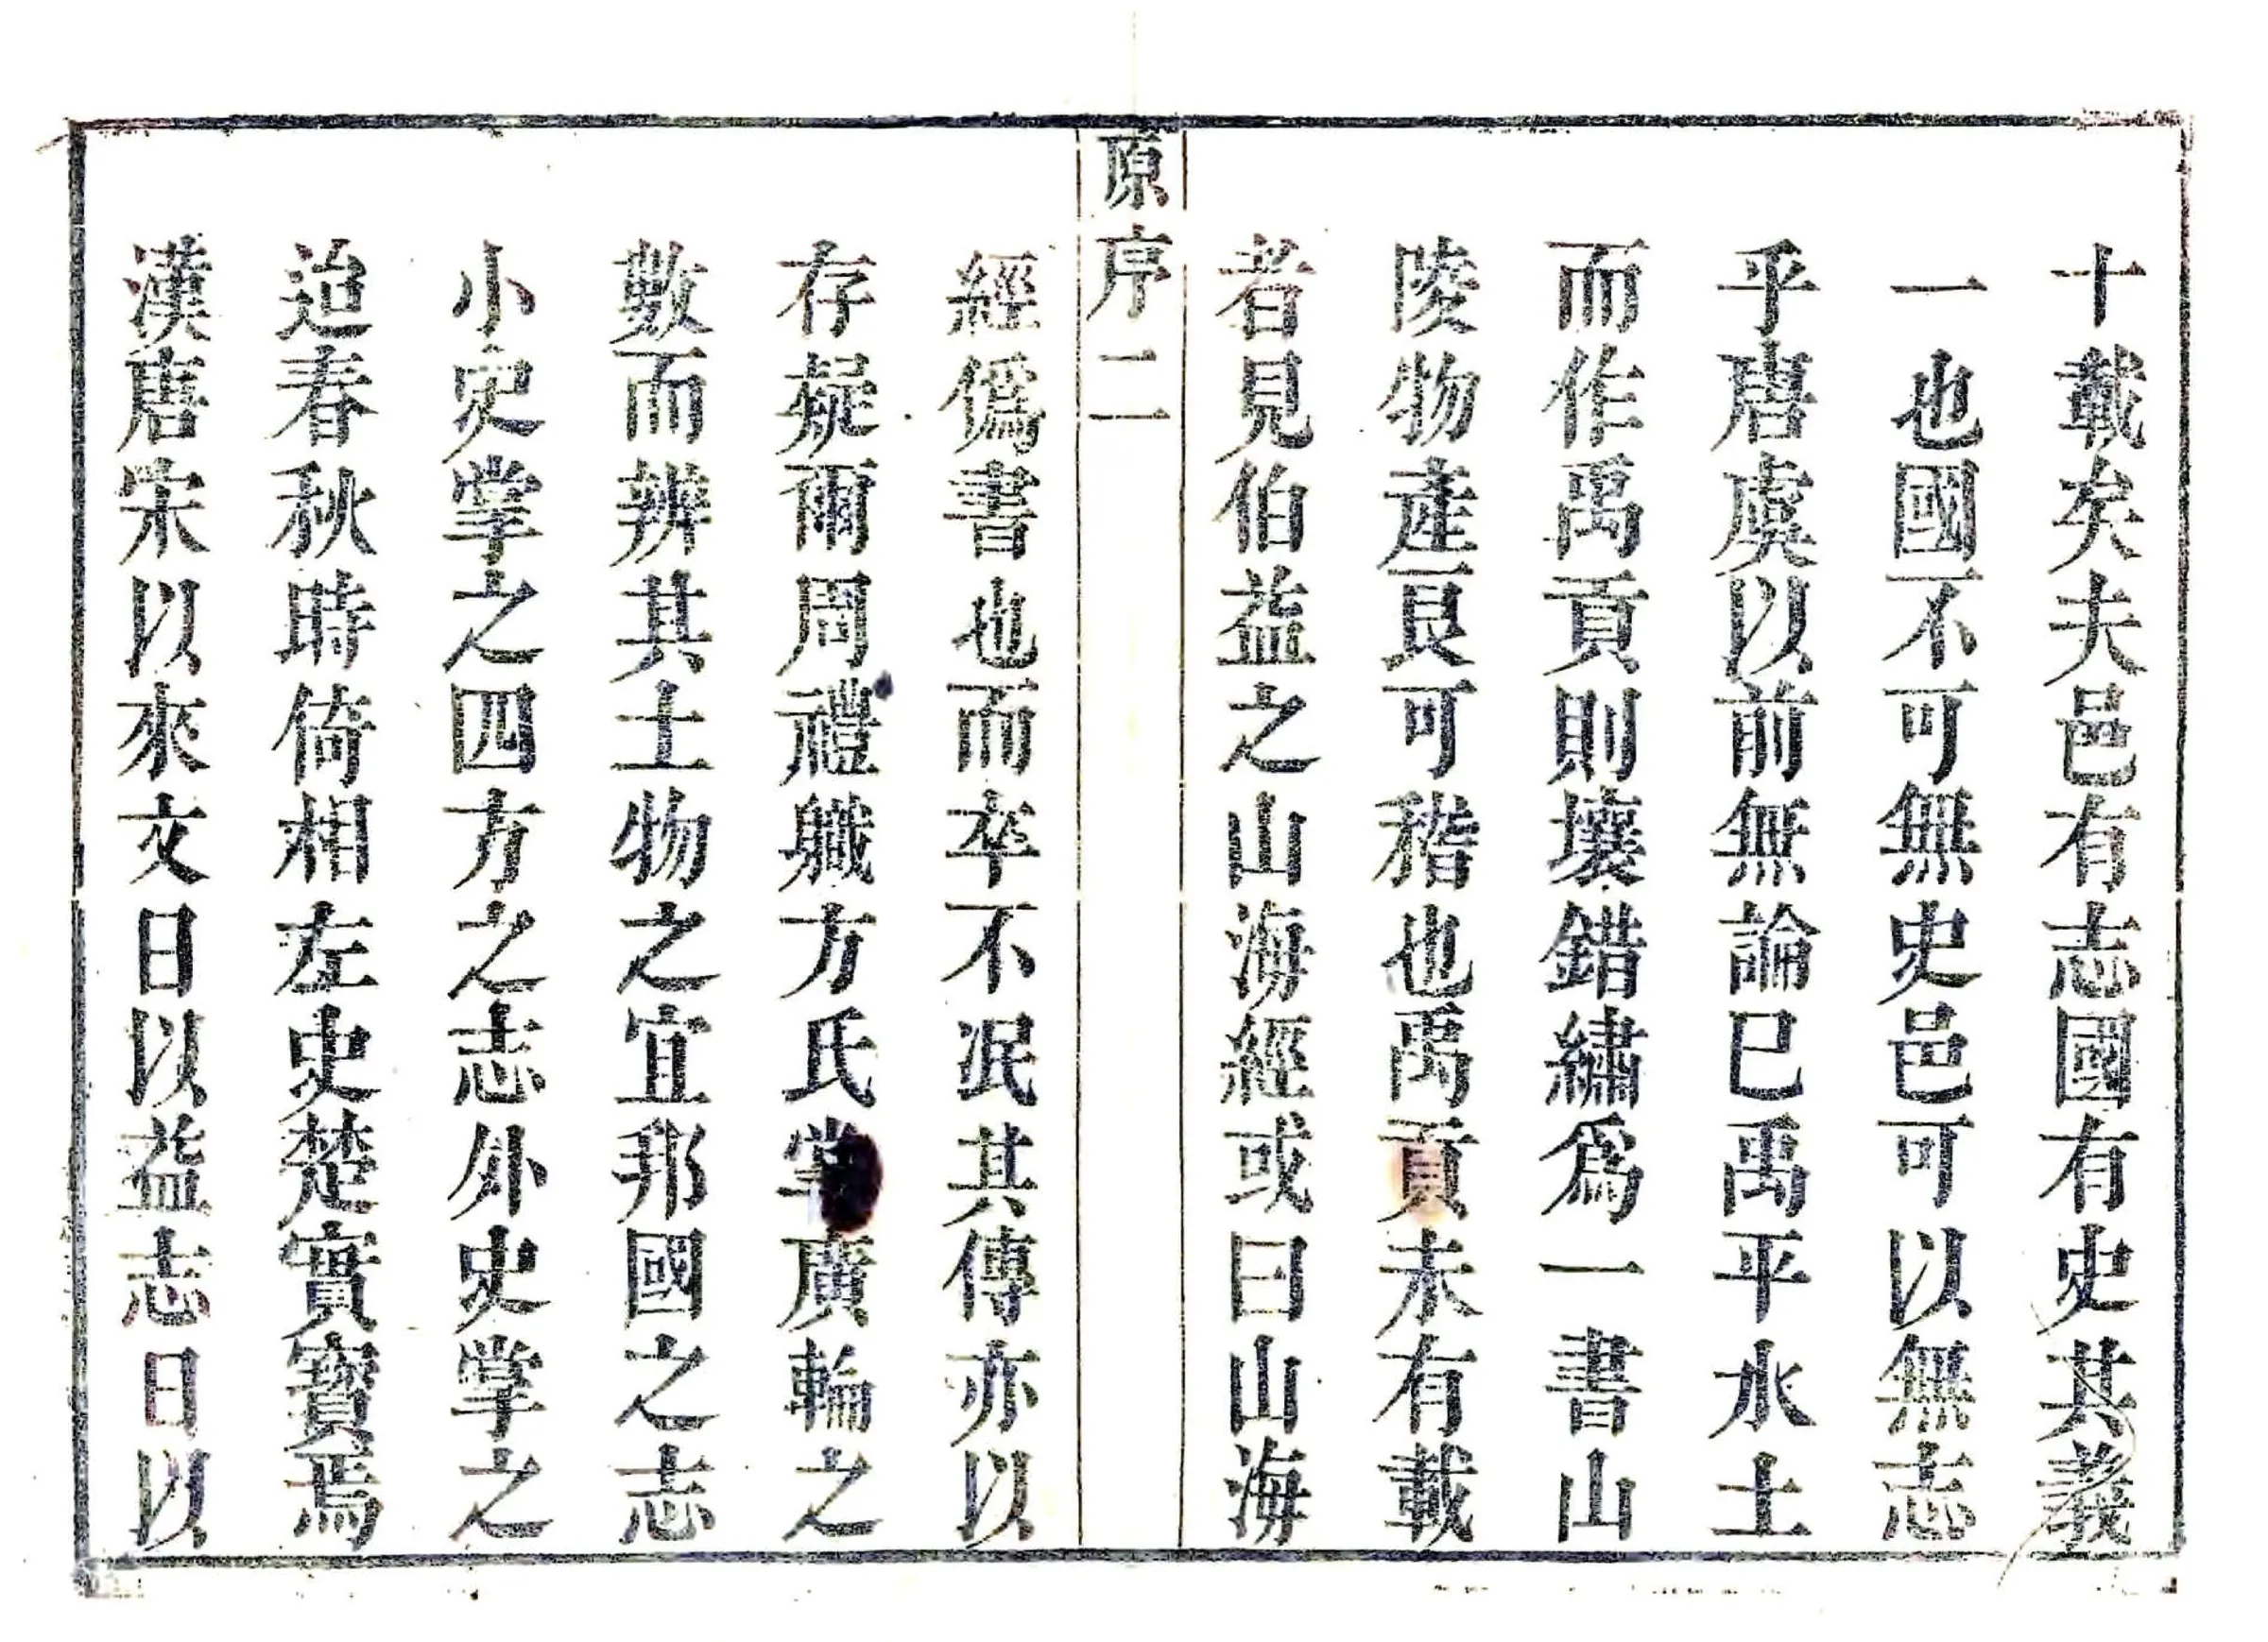 十載矣夫邑有志國有史其義
一也國不可無史邑可以無志
乎唐虞以前無論已禹平水土
而作禹貢則壤錯繡爲一書山
陵物產艮可稽也禹貢未有載
者見伯益之山海經或曰山海
原序 二
經僞書也而卒不泯其傳亦以
存疑爾周禮軄方氏掌廣輪之
數而辨其土物之宜邦國之志
小史掌之四方之志外史掌之
迨春秋時倚相左史楚實寶焉
漢唐宋以來文日以益志日以